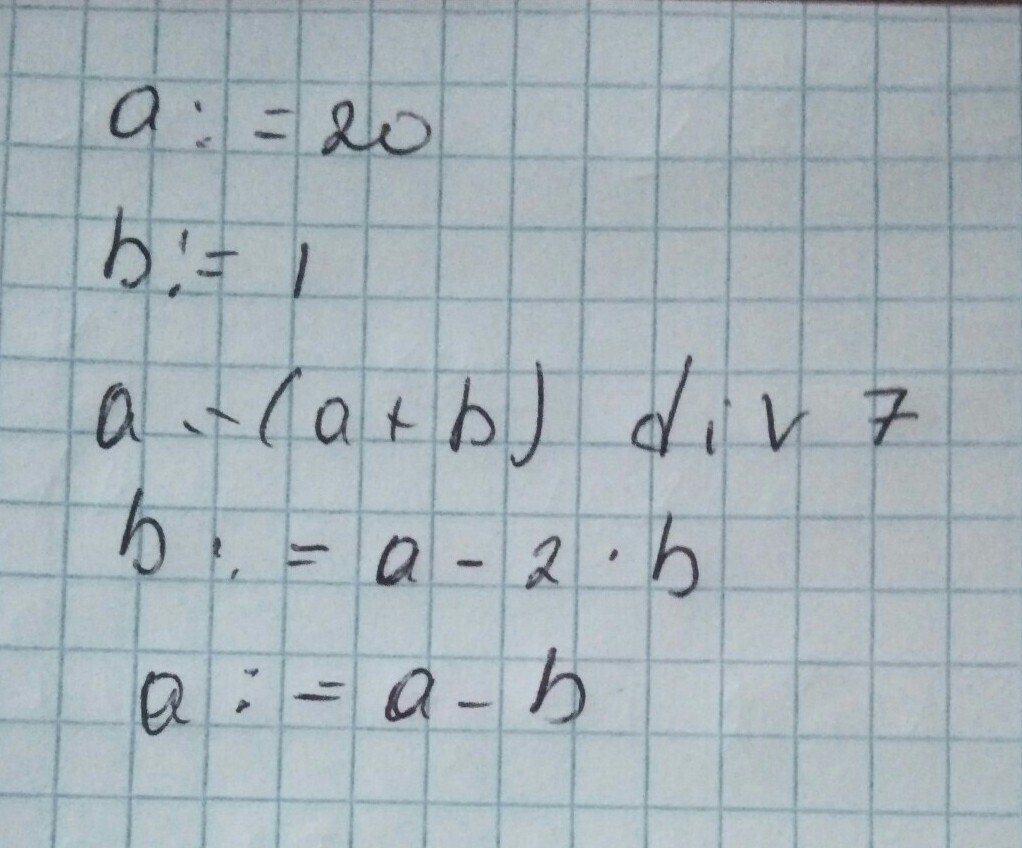 a := 20
b := 1
a := (a + b) div 7
b := a - 2 · b
a := a - b